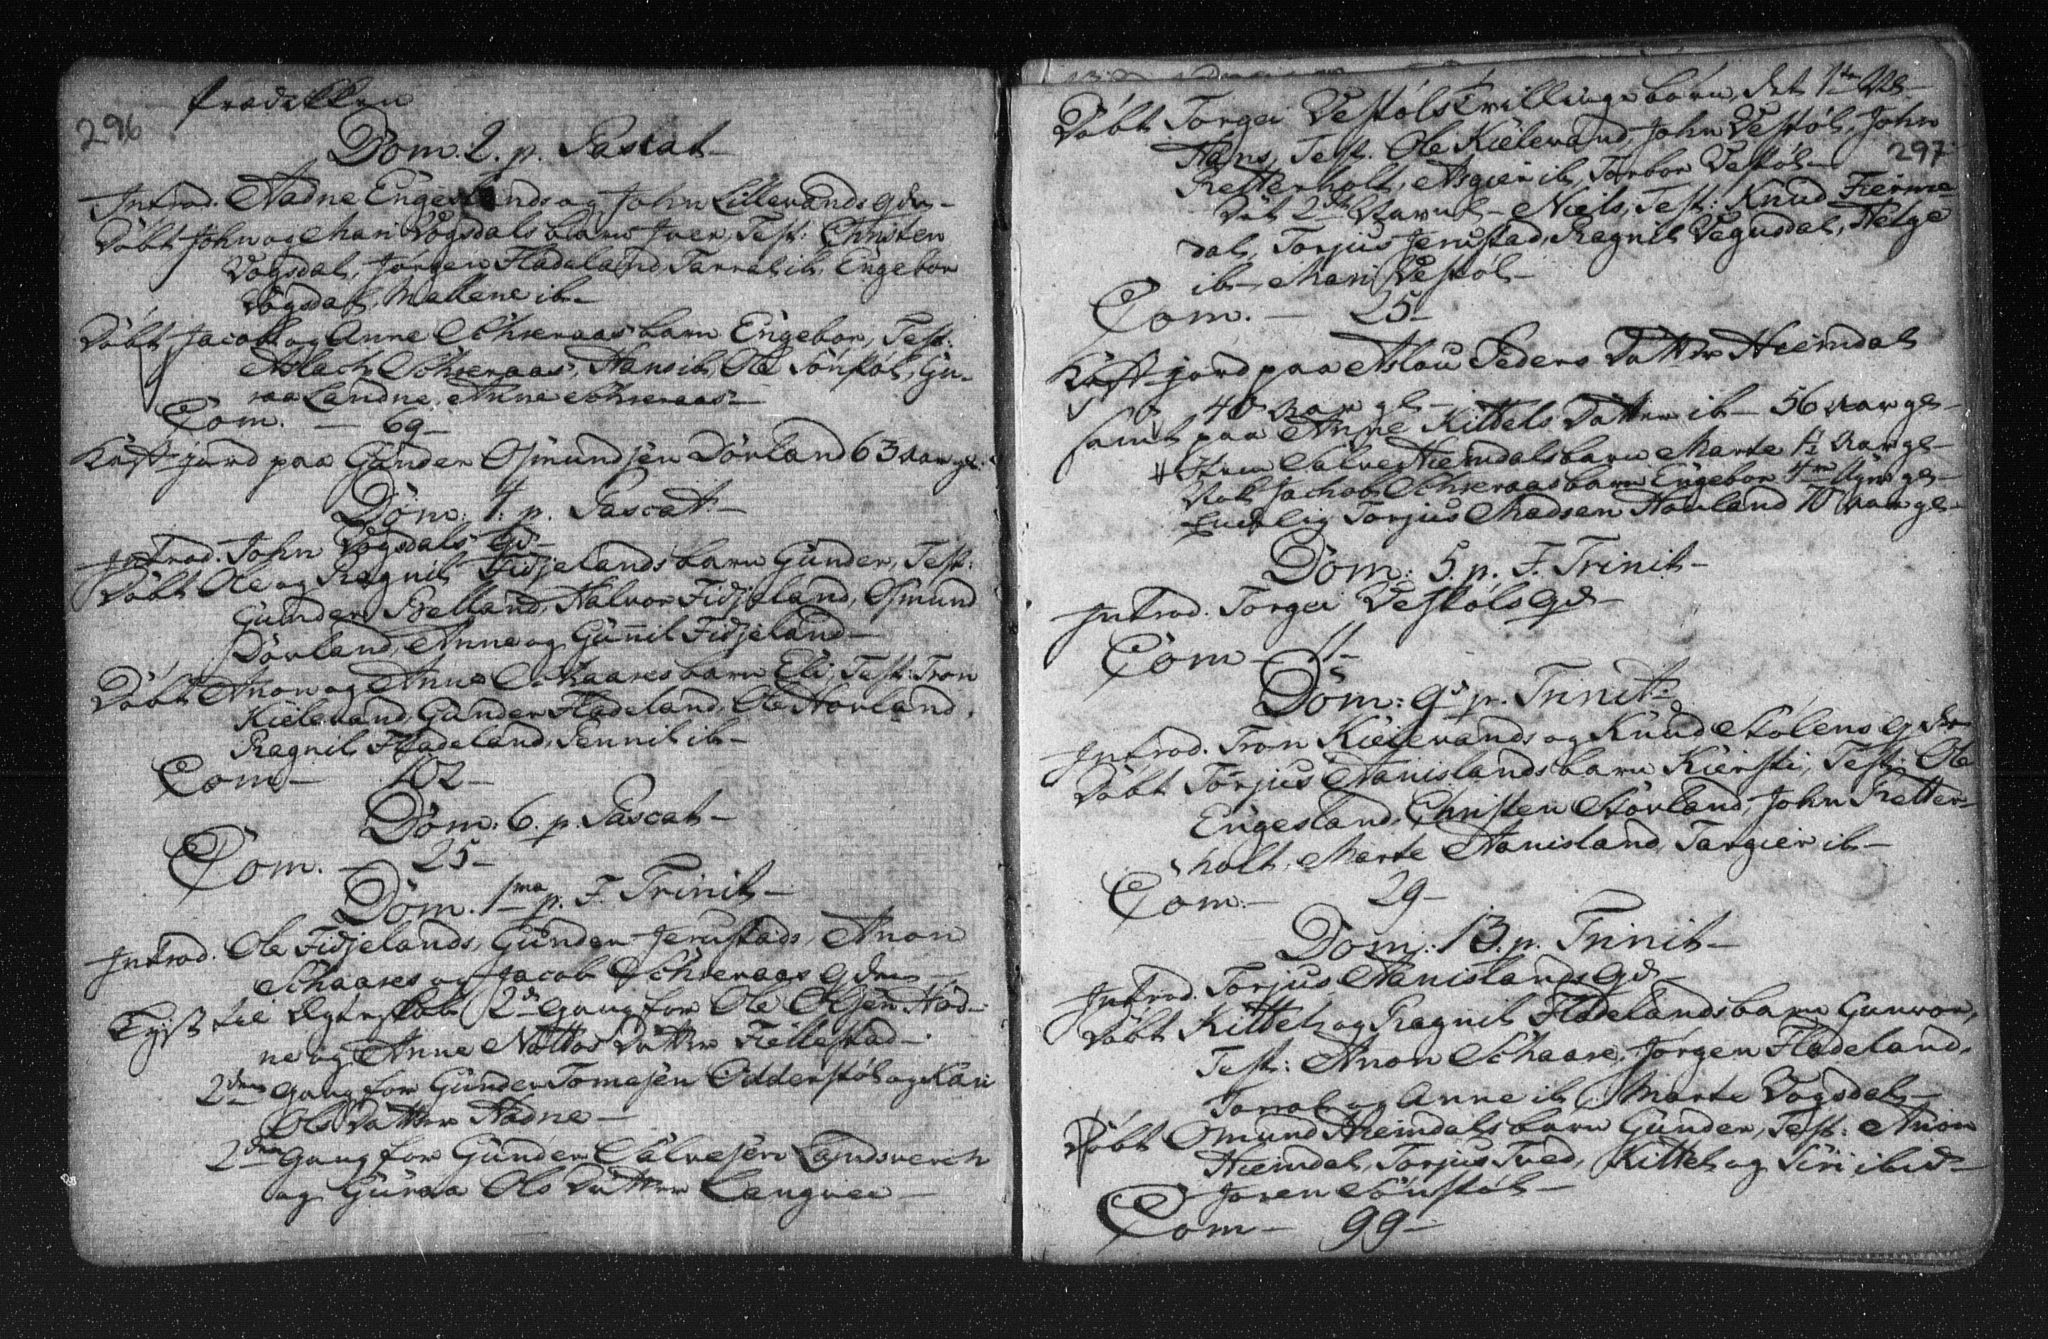 296
prædikken
Dom. 2. p. Pascat
Introd. Aadne Engeslands og John Lillevands qdr
Døbt John og Mari Vogsdals barn Iver, Test: Christen
Vogsdal, Jørgen Fladeland, Tarral ib, Engebor
Vogsdal, Mallene ib
Døbt Jacob og Anne Schreraas barn Engebor, Test:
Aslach Schreraas, Hans ib, Ole Sønstøl, Gu-
roe Landne, Anne Schreraas
Com. — 69
Kast jord paa Gunder Osmundsen Dørland 63 aar gl.
Dom: 4. p. Pascat
Introd. John Vogsdals qd
Døbt Ole og Ragnil Fidjelands barn Gunder, Test:
Gunder Belland, Halvor Fidjeland, Osmund
Dørland, Anne og Gunnil Fidjeland
Døbt Anon og Anne Schaares barn Eli, Test: Tron
Kielevand, Gunder Fladeland, Ole Hovland,
Ragnil Fladeland, Pernil ib
Com — 102
Dom: 6. p. Pascat
Com. — 25
Dom. 1ma p. F. Trinit
Introd. Ole Fidjelands, Gunder Jerustads, Anon
Schaares og Jacob Schreraas qdr
Lyst til Egteskab 2de gang for Ole Olsen Aad-
ne og Anne Nottos Datter Fillestad
2den gang for Gunder Tomesen Odderstøl og Kari
Ols Datter Aadne
2den gang for Gunder Salvesen Landsverch
og Guroe Ols Datter Langvei
297
Døbt Torgei Vestøls Tvillinge børn, det 1ste
Hans, Test. Ole Kielevand, John Vestøl, John
Retterholt, Asgier ib, Torbor Vestøl
Det 2det Navnl Niels, Test: Knud Fierme-
dal, Torjus Jerustad, Ragnil Vegusdal, Helge
ib, Mari Vestøl
Com. — 25
Kast jord paa Aslou Peders Datter Hiemdal
40 aar gl
samt paa Anne Kittels Datter ib 56 aar gl
Salve Hiemdals barn Marte 1½ aar gl
Jachob Schreraas barn Engebor 4 Ugr gl
Endelig Torjus Madsen Hovland 70 aar gl
Dom: 5. p. F. Trinit
Introd. Torgei Vestøls qd
Com — 11
Dom: 9de p. Trinit
Introd. Tron Kielevands og Knud Stølens qdr
Døbt Torjus Hanislands barn Kiersti, Test: Ole
Engesland, Christen Størland, John Retter-
holt, Marte Hanisland, Targier ib
Com. — 29
Dom: 13. p. Trinit
Introd. Torjus Hanislands qd
Døbt Kittel og Ragnil Fladelands barn Gunvor,
Test: Anon Schaare, Jørgen Fladeland,
Torral og Anne ib, Marte Vogsdal
Døbt Osmund Hiemdals barn Gunder, Test: Anon
Hiemdal, Torjus Tved, Kittel og Siri ibid
Joren Sønstøl
Com — 99